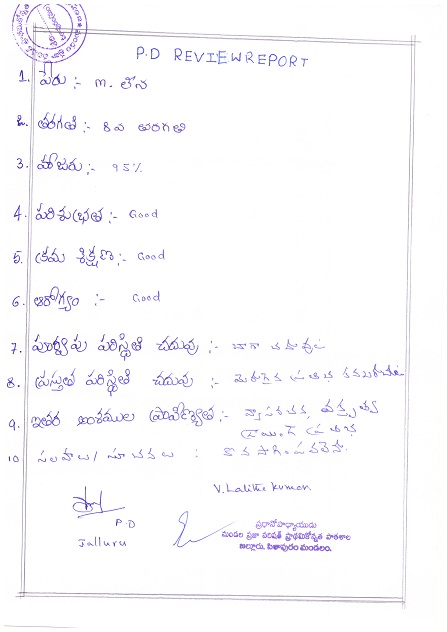 P.D REVIEW REPORT
1. పేరు :- m. లీన
2. తరగతి :- 8వ తరగతి
3. హాజరు :- 95%
4. పరిశుభ్రత :- Good
5. క్రమ శిక్షణ :- Good
6. ఆరోగ్యం :- Good
7. పూర్వపు పరిస్థితి చదువు :-
8. ప్రస్తుత పరిస్థితి చదువు :- మెరుగైన ప్రతిభ
9. ఇతర అంశముల ప్రావీణ్యత :- వ్యాసరచన, వక్తృత్వ
10. సలహాలు / సూచనలు :
V. Lalitha Kumari
P.D
Jalluru
ప్రధానోపాధ్యాయుడు
మండల ప్రజా పరిషత్ ప్రాథమికోన్నత పాఠశాల
జల్లూరు, పిఠాపురం మండలం.